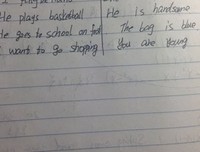 He plays basketball He is handsome
He goes to school on foot The bag is blue
I want to go shopping You are young